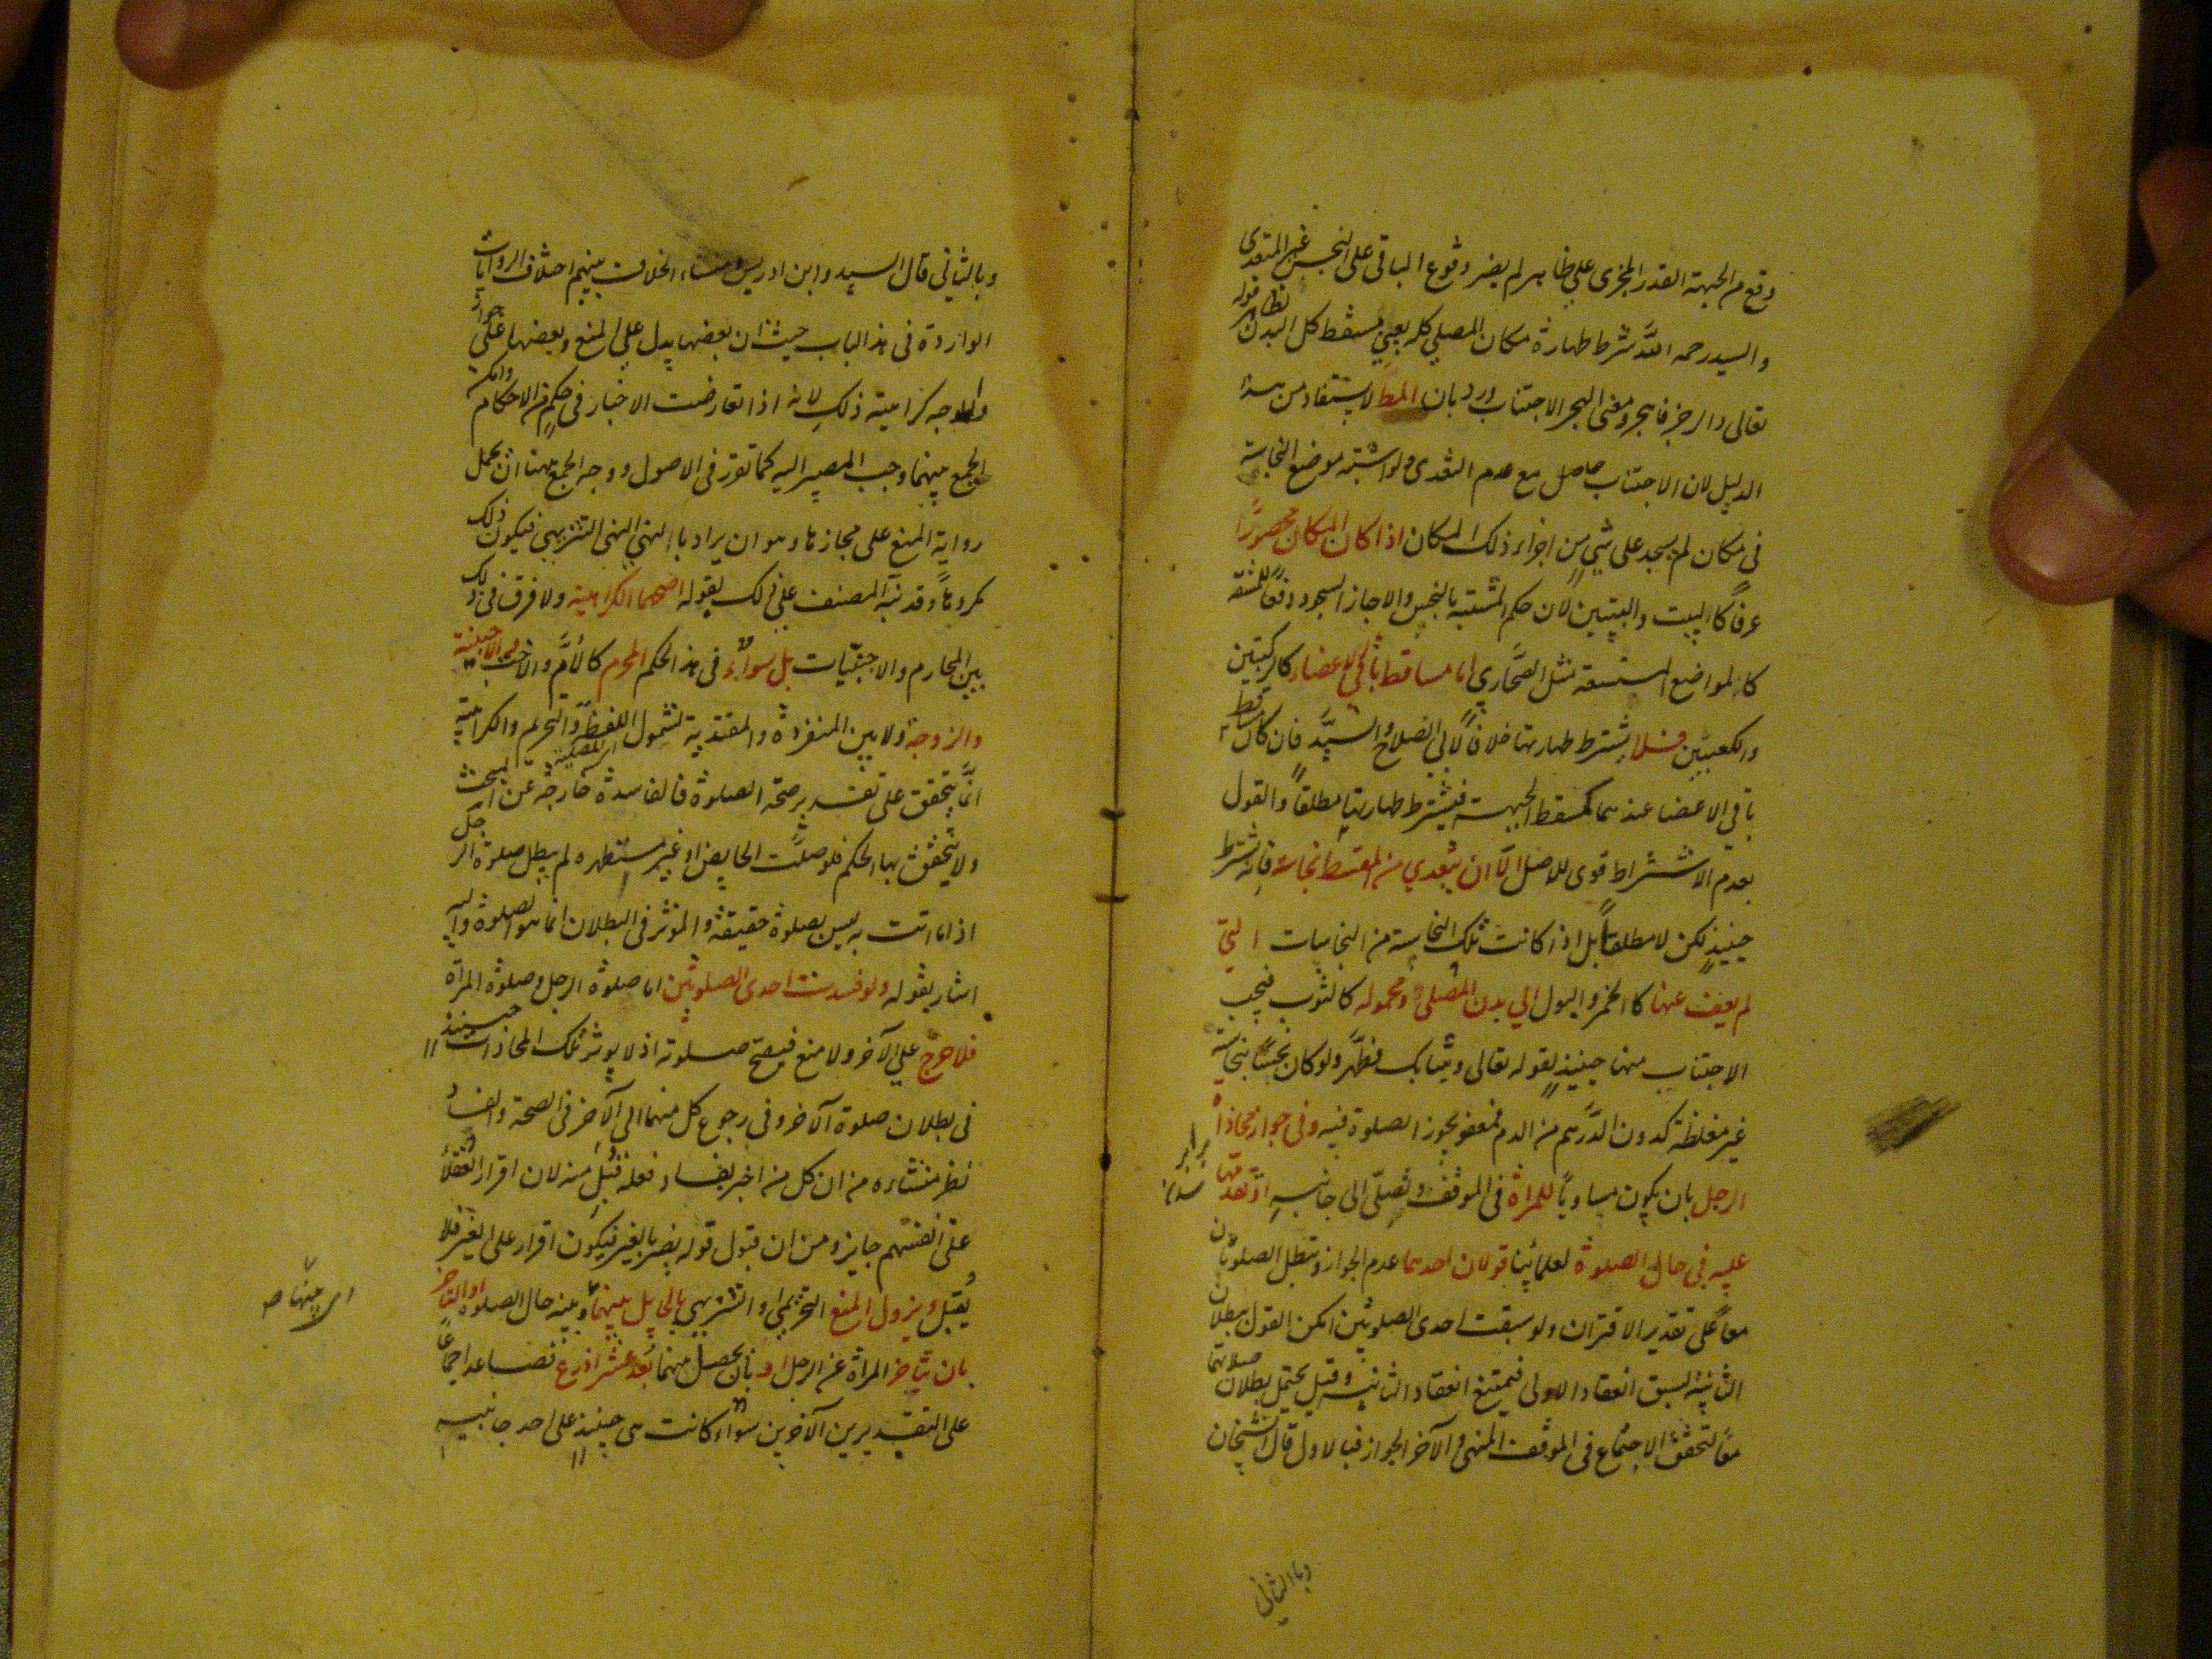 وقع من الجبهة القدر المجزى على طاهر لم يضر وقوع الباقى على النجس غير المتعدى
والسيد رحمه الله شرط طهارة مكان المصلى كله يعنى مسقط كل البدن لقوله
تعالى والرجز فاهجر ومعنى الهجر الاجتناب ورد بان لا يستفاد من هذا
الدليل لان الاجتناب حاصل مع عدم التعدى ولو اشتبه موضع النجاسة
فى مكان لم يسجد على شىء من اجزاء ذلك المكان اذا كان المكان محصورًا
عرفًا كالبيت والبيتين لان حكم المشتبه بالنجس والا جاز السجود دفعًا للمشقة
كالمواضع المتسعة مثل الصحارى اما مساقط باقى الاعضاء كالركبتين
والكعبين فلا يشترط طهارتها خلافًا لابى الصلاح والسيد فان كان مساقط
باقى الاعضاء عندهما كمسقط الجبهة فيشترط طهارتها مطلقًا والقول
بعدم الاشتراط قوى للاصل الا ان يتعدى من المسقط نجاسة فانه يشترط
حينئذ لكن لا مطلقًا بل اذا كانت تلك النجاسة من النجاسات التى
لم يعف عنها كالخمر والبول الى بدن المصلى او محموله كالثوب فيجب
الاجتناب منها حينئذ لقوله تعالى وثيابك فطهر ولو كان نجسًا بنجاسة
غير مغلظة كدون الدرهم من الدم فمعفو يجوز الصلوة فيه وفى جواز محاذاة
الرجل بان يكون مساويًا للمراة فى الموقف وتصلى الى جانبه او تقدمها
برابر
عليه فى حال الصلوة لعلمائنا قولان احدهما عدم الجواز وتبطل الصلوتان
معًا على تقدير الاقتران ولو سبقت احدى الصلوتين امكن القول ببطلان
الثانية لسبق انعقاد الاولى فيمتنع انعقاد الثانية وقيل يحتمل بطلان صلاتهما
معًا لتحقق الاجتماع فى الموقف المنهى والآخر الجواز فبالاول قال الشيخان
وبالثانى
وبالثانى قال السيد وابن ادريس ومنشاء الخلاف بينهم اختلاف الروايات
الواردة فى هذا الباب حيث ان بعضها يدل على المنع وبعضها على جوازه
والاوجه كراهية ذلك لانه اذا تعارضت الاخبار فى حكم من الاحكام وامكن
الجمع بينهما وجب المصير اليه كما تقرر فى الاصول ووجه الجمع هنا ان يحمل
رواية المنع على مجازها وهو ان يراد بالنهى النهى التنزيهى فيكون ذلك
مكروهًا وقد نبه المصنف على ذلك بقوله اصحهما الكراهية ولا فرق فى ذلك
بين المحارم والاجنبيات بل سواء فى هذا الحكم المحرم كالام والاخت والاجنبية
والزوجة ولا بين المنفردة والمقتدية لشمول اللفظ والتحريم والكراهية
انما يتحقق على تقدير صحة الصلوة فالفاسدة خارجة عن المبحث
ولا يتحقق بها الحكم فلو صلت الحايض او غير مستطهره لم يبطل صلوة الرجل
اذ ما اتت به ليس بصلوة حقيقة والمؤثر فى البطلان انما هو الصلوة واليه
اشار بقوله ولو فسدت احدى الصلوتين اما صلوة الرجل وصلوة المراة
فلا حرج على الآخر ولا منع فيصح صلوته اذ لا يوثر تلك المحاذات حينئذ
فى بطلان صلوة الآخر وفى رجوع كل منهما الى الآخر فى الصحة والفساد
نظر منشاءه من ان كل من اخبر بفساد فعله قُبل منه لان اقرار العقلاء
على انفسهم جايز ومن ان قبول قوله يضر بالغير فيكون اقرار على الغير فلا
يُقبل ويزول المنع التحريمى او التنزيهى بالحايل بينها وبينه حال الصلوة او التاخر
اى بينهما ص
بان تتاخر المراة عن الرجل او بان يحصل بينهما بُعد عشر اذرع فصاعدا اجماعًا
على التقديرين الآخرين سواء كانت هى حينئذ على احد جانبيه